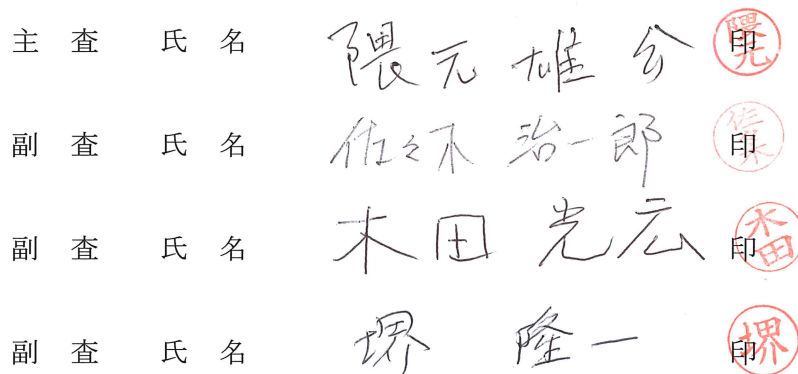 主 査 氏 名 隈元 雄公 印 隈元
副 査 氏 名 佐々木 治一郎 印 佐々木
副 査 氏 名 木田 光広 印 木田
副 査 氏 名 堺 隆一 印 堺